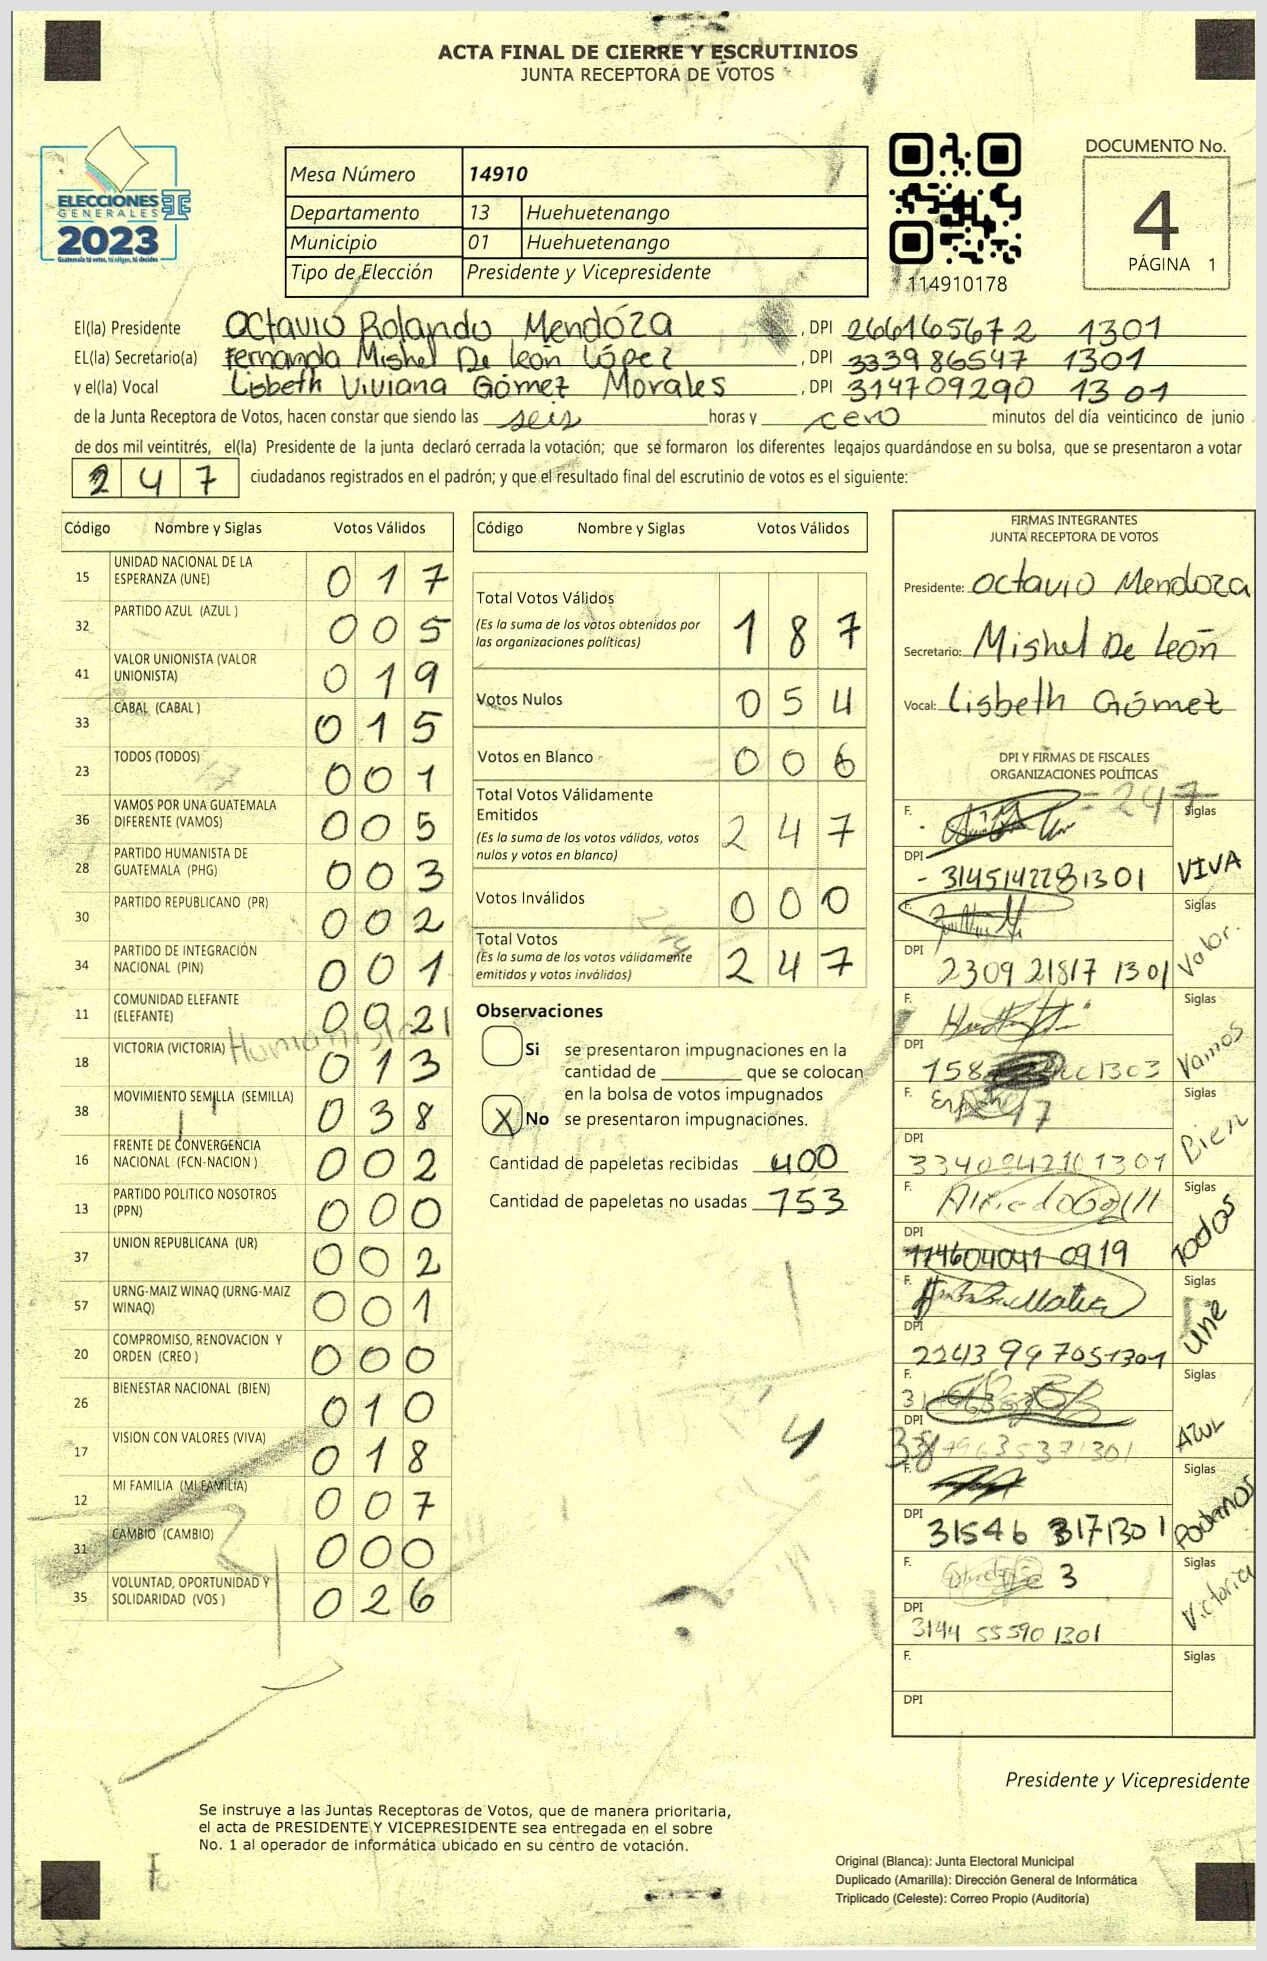 ACTA FINAL DE CIERRE Y ESCRUTINIOS
JUNTA RECEPTORA DE VOTOS
ELECCIONES
GENERALES
2023
Guatemala tú votas, tú eliges, tú decides
Mesa Número 14910
Departamento 13 Huehuetenango
Municipio 01 Huehuetenango
Tipo de Elección Presidente y Vicepresidente
114910178
DOCUMENTO No.
4
PÁGINA 1
El(la) Presidente Octavio Rolando Mendoza , DPI 266165672 1301
EL(la) Secretario(a) Fernanda Mishel De Leon López , DPI 333986547 1301
y el(la) Vocal Lisbeth Viviana Gómez Morales , DPI 314709290 1301
de la Junta Receptora de Votos, hacen constar que siendo las seis horas y cero minutos del día veinticinco de junio
de dos mil veintitrés, el(la) Presidente de la junta declaró cerrada la votación; que se formaron los diferentes legajos guardándose en su bolsa, que se presentaron a votar
247 ciudadanos registrados en el padrón; y que el resultado final del escrutinio de votos es el siguiente:
Código Nombre y Siglas Votos Válidos
15 UNIDAD NACIONAL DE LA ESPERANZA (UNE) 017
32 PARTIDO AZUL (AZUL ) 005
41 VALOR UNIONISTA (VALOR UNIONISTA) 019
33 CABAL (CABAL ) 015
23 TODOS (TODOS) 001
36 VAMOS POR UNA GUATEMALA DIFERENTE (VAMOS) 005
28 PARTIDO HUMANISTA DE GUATEMALA (PHG) 003
30 PARTIDO REPUBLICANO (PR) 002
34 PARTIDO DE INTEGRACIÓN NACIONAL (PIN) 001
11 COMUNIDAD ELEFANTE (ELEFANTE)
18 VICTORIA (VICTORIA) 013
38 MOVIMIENTO SEMILLA (SEMILLA) 038
16 FRENTE DE CONVERGENCIA NACIONAL (FCN-NACION ) 002
13 PARTIDO POLITICO NOSOTROS (PPN) 000
37 UNION REPUBLICANA (UR) 002
57 URNG-MAIZ WINAQ (URNG-MAIZ WINAQ) 001
20 COMPROMISO, RENOVACION Y ORDEN (CREO ) 000
26 BIENESTAR NACIONAL (BIEN) 010
17 VISION CON VALORES (VIVA) 018
12 MI FAMILIA (MI FAMILIA) 007
31 CAMBIO (CAMBIO) 000
35 VOLUNTAD, OPORTUNIDAD Y SOLIDARIDAD (VOS ) 026
Código Nombre y Siglas Votos Válidos
Total Votos Válidos 187
(Es la suma de los votos obtenidos por
las organizaciones políticas)
Votos Nulos 054
Votos en Blanco 006
Total Votos Válidamente
Emitidos 247
(Es la suma de los votos válidos, votos
nulos y votos en blanco)
Votos Inválidos 000
Total Votos 247
(Es la suma de los votos válidamente
emitidos y votos inválidos)
Observaciones
Si se presentaron impugnaciones en la
cantidad de ________ que se colocan
en la bolsa de votos impugnados
X No se presentaron impugnaciones.
Cantidad de papeletas recibidas 400
Cantidad de papeletas no usadas 153
4
FIRMAS INTEGRANTES
JUNTA RECEPTORA DE VOTOS
Presidente: Octavio Mendoza
Secretario: Mishel De León
Vocal: Lisbeth Gómez
DPI Y FIRMAS DE FISCALES
ORGANIZACIONES POLÍTICAS
= 247
F. Siglas
DPI 3145142281301 VIVA
F. Siglas
DPI 2309 21817 1301 Valor.
F. Siglas
DPI Vamos
F. Siglas
DPI Bien
F. Siglas
DPI Todos
F. Siglas
DPI 2243 99 7051301 Une
F. Siglas
DPI Azul
F. Siglas
DPI 31546 3171301 Podemos
F. Siglas
DPI 3144 55590 1301 Victoria
F. Siglas
DPI
Presidente y Vicepresidente
Se instruye a las Juntas Receptoras de Votos, que de manera prioritaria,
el acta de PRESIDENTE Y VICEPRESIDENTE sea entregada en el sobre
No. 1 al operador de informática ubicado en su centro de votación.
Original (Blanca): Junta Electoral Municipal
Duplicado (Amarilla): Dirección General de Informática
Triplicado (Celeste): Correo Propio (Auditoría)